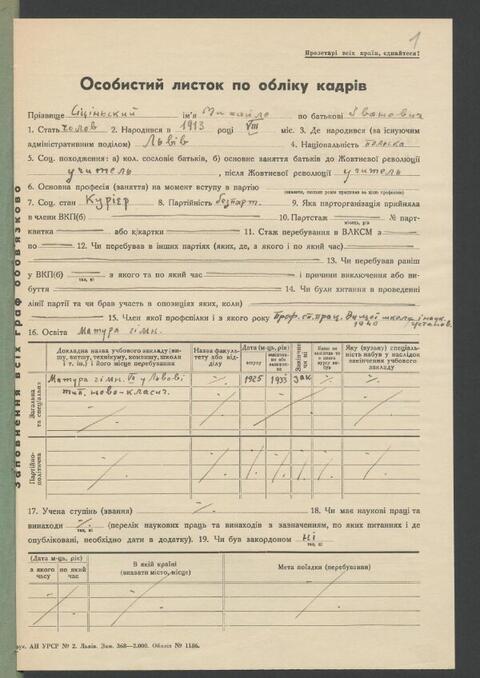 1
Пролетарі всіх країн, єднайтеся!
Особистий листок по обліку кадрів
Прізвище Сіціньский ім'я Михайло по батькові Іванович
1. Стать чолов 2. Народився в 1913 році VIII міс. 3. Де народився (за існуючим
адміністративним поділом) Львів 4. Національність полька
5. Соц. походження: а) кол. сословіє батьків, б) основне заняття батьків до Жовтневої революції
учитель, після Жовтневої революції учитель
6. Основна професія (заняття) на момент вступу в партію
7. Соц. стан Курієр 8. Партійність безпарт. 9. Яка парторганізація прийняла
в члени ВКП(б) 10. Партстаж № парт-
місяць, рік
квитка або к/картки 11. Стаж перебування в ВЛКСМ з
по 12. Чи перебував в інших партіях (яких, де, з якого і по який час)
13. Чи перебував раніш
у ВКП(б) з якого та по який час і причини виключення або ви-
так, ні
буття 14. Чи були хитання в проведенні
лінії партії та чи брав участь в опозиціях яких, коли)
15. Член якої профспілки і з якого року Проф. сп. прац. Вищої школи і наук. установ.
1940
16. Освіта Матура гімн.
Докладна назва учбового закладу (ви-
шу, втшу, технікуму, комвишу, школи
і т. ін.) і його місце перебування
Назва факуль-
тету або від-
ділу
Дата (м-ць, рік)
вступу
Закінчив
чи ні
Яку (вузьку) спеціаль-
ність набув у наслідок
закінчення учбового
закладу
Загальна
та спеціальна
Матура гімн. VI у Львові 1925 1933 зак
тип. ново-класич.
Партійно-
політична
17. Учена ступінь (звання) 18. Чи має наукові праці та
винаходи (перелік наукових праць та винаходів з зазначенням, по яких питаннях і де
так, ні
опубліковані, необхідно дати в додатку). 19. Чи був закордоном ні
так, ні
(Дата м-ць, рік)
з якого
часу
по який
час
В якій країні
(вказати місто, місце)
Мета поїздки (перебування)
Заповнення всіх граф обов'язково
рук. АН УРСР № 2. Львів. Зам. 368—2.000. Обліт № 1186.